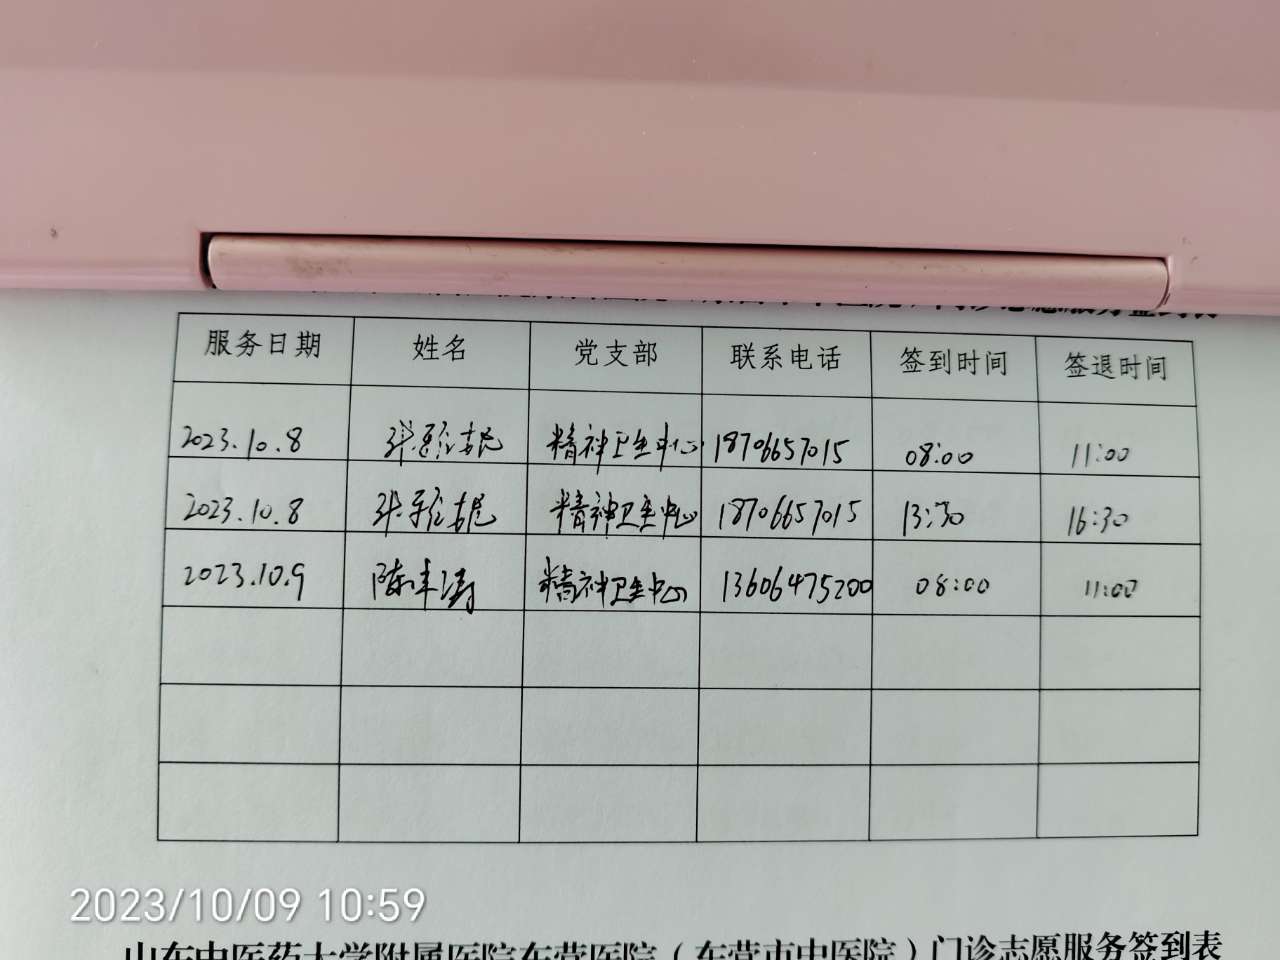 门诊志愿服务签到表
服务日期 姓名 党支部 联系电话 签到时间 签退时间
2023.10.8 精神卫生中心 18706657015 08:00 11:00
2023.10.8 精神卫生中心 18706657015 13:30 16:30
2023.10.9 陈丰涛 精神卫生中心 13606475200 08:00 11:00
2023/10/09 10:59
山东中医药大学附属医院东营医院（东营市中医院）门诊志愿服务签到表